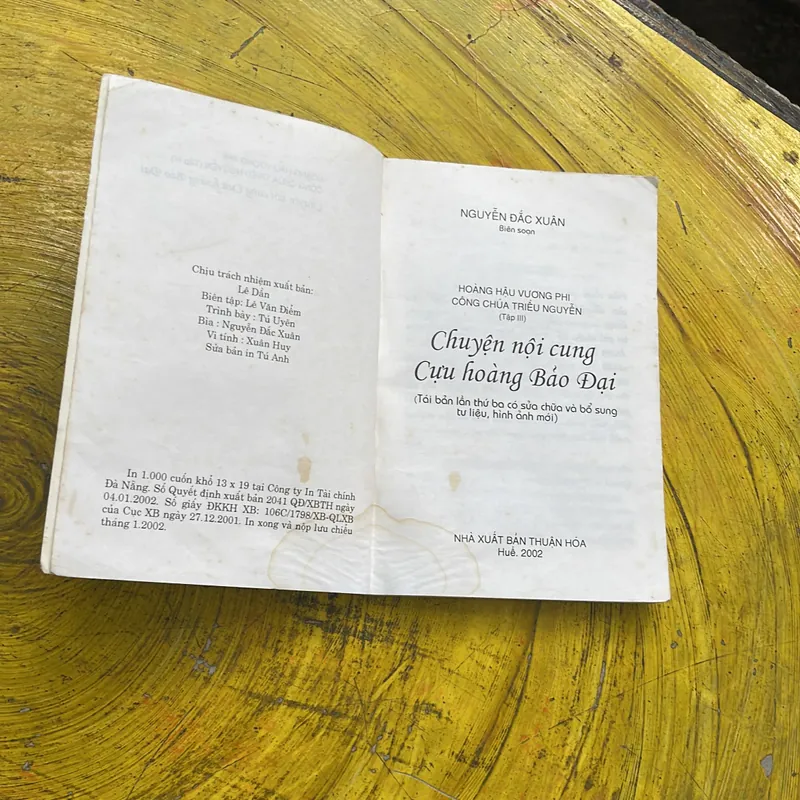 Chịu trách nhiệm xuất bản:
Lê Dần
Biên tập: Lê Văn Điểm
Trình bày : Tú Uyên
Bìa : Nguyễn Đắc Xuân
Vi tính : Xuân Huy
Sửa bản in Tú Anh
In 1.000 cuốn khổ 13 x 19 tại Công ty In Tài chính
Đà Nẵng. Số Quyết định xuất bản 2041 QĐ/XBTH ngày
04.01.2002. Số giấy ĐKKH XB: 106C/1798/XB-QLXB
của Cục XB ngày 27.12.2001. In xong và nộp lưu chiểu
tháng 1.2002.
NGUYỄN ĐẮC XUÂN
Biên soạn
HOÀNG HẬU VƯƠNG PHI
CÔNG CHÚA TRIỀU NGUYỄN
(Tập III)
Chuyện nội cung
Cựu hoàng Bảo Đại
(Tái bản lần thứ ba có sửa chữa và bổ sung
tư liệu, hình ảnh mới)
NHÀ XUẤT BẢN THUẬN HÓA
Huế. 2002